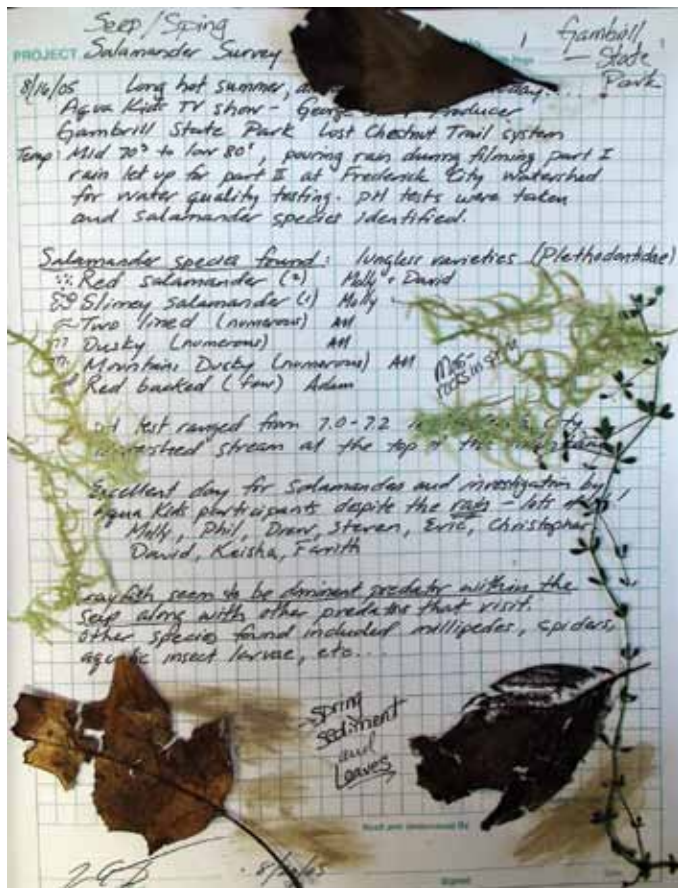 Seep/Spring
PROJECT Salamander Survey
1
Gambrill
State
Park
8/16/05 Long hot summer,
Aqua Kids TV show - George Producer
Gambrill State Park Lost Chestnut Trail system
Temp: Mid 70s to low 80s, pouring rain during filming part I
rain let up for part II at Frederick City Watershed
for water quality testing. pH tests were taken
and salamander species identified.
Salamander species found: lungless varieties (Plethodontidae)
Red salamander (2) Molly + David
Slimey salamander (1) Molly
Two lined (numerous) All
Dusky (numerous) All
Mountain Dusky (numerous) All
Red backed (few) Adam
Moss
rocks in
pH test ranged from 7.0-7.2 City
watershed stream at the top of the
Excellent day for Salamanders and investigation by
Aqua Kids participants despite the rain - lots
Molly, Phil, Drew, Steven, Eric, Christopher
David, Keisha, Farrith
crayfish seem to be dominent predator within the
seep along with other predators that visit.
Other species found included millipedes, spiders,
aquatic insect larvae, etc...
spring
sediment
and
Leaves
Read and Understood By
Signed